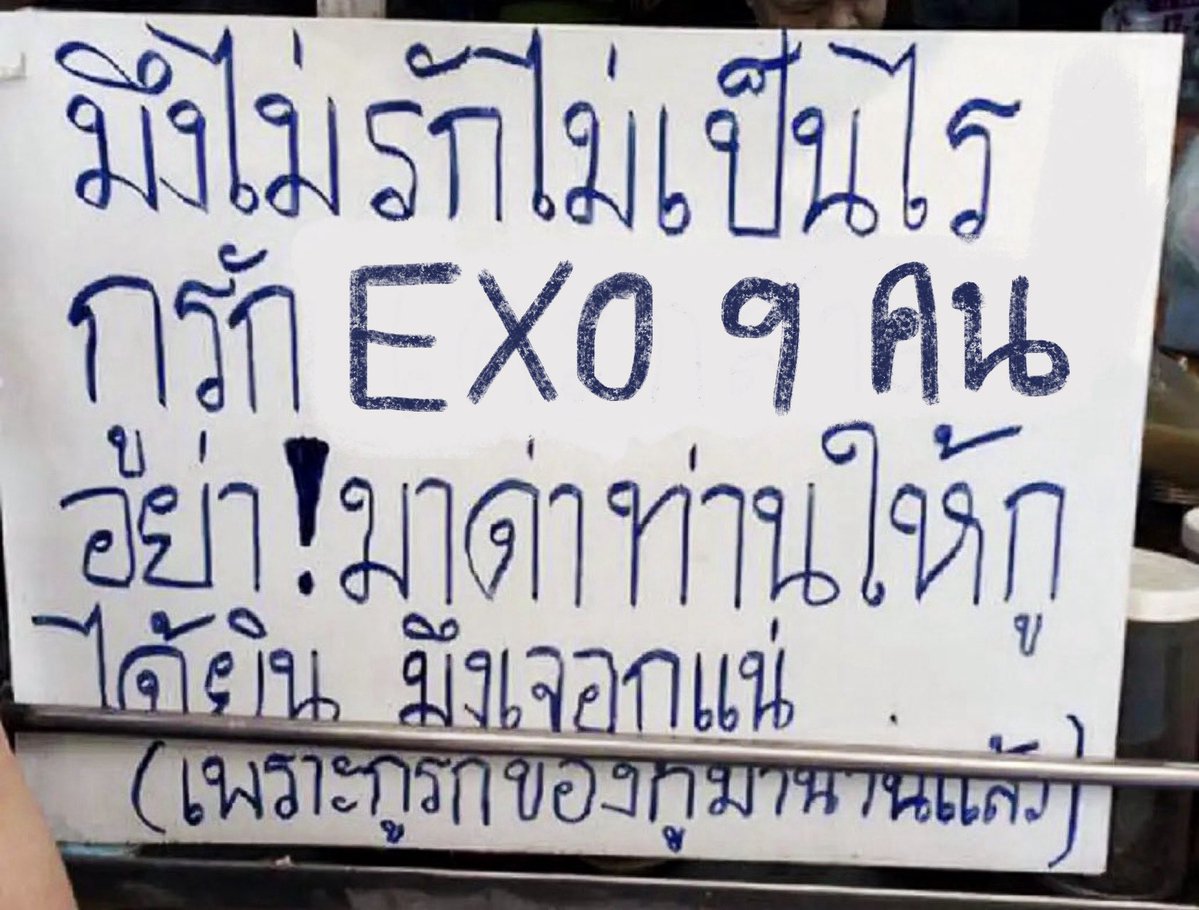 มึงไม่รักไม่เป็นไร
กูรัก EXO 9 คน
อย่า! มาด่าท่านให้กู
ได้ยิน มึงเจอกูแน่
(เพราะกูรักของกูมานานแล้ว)